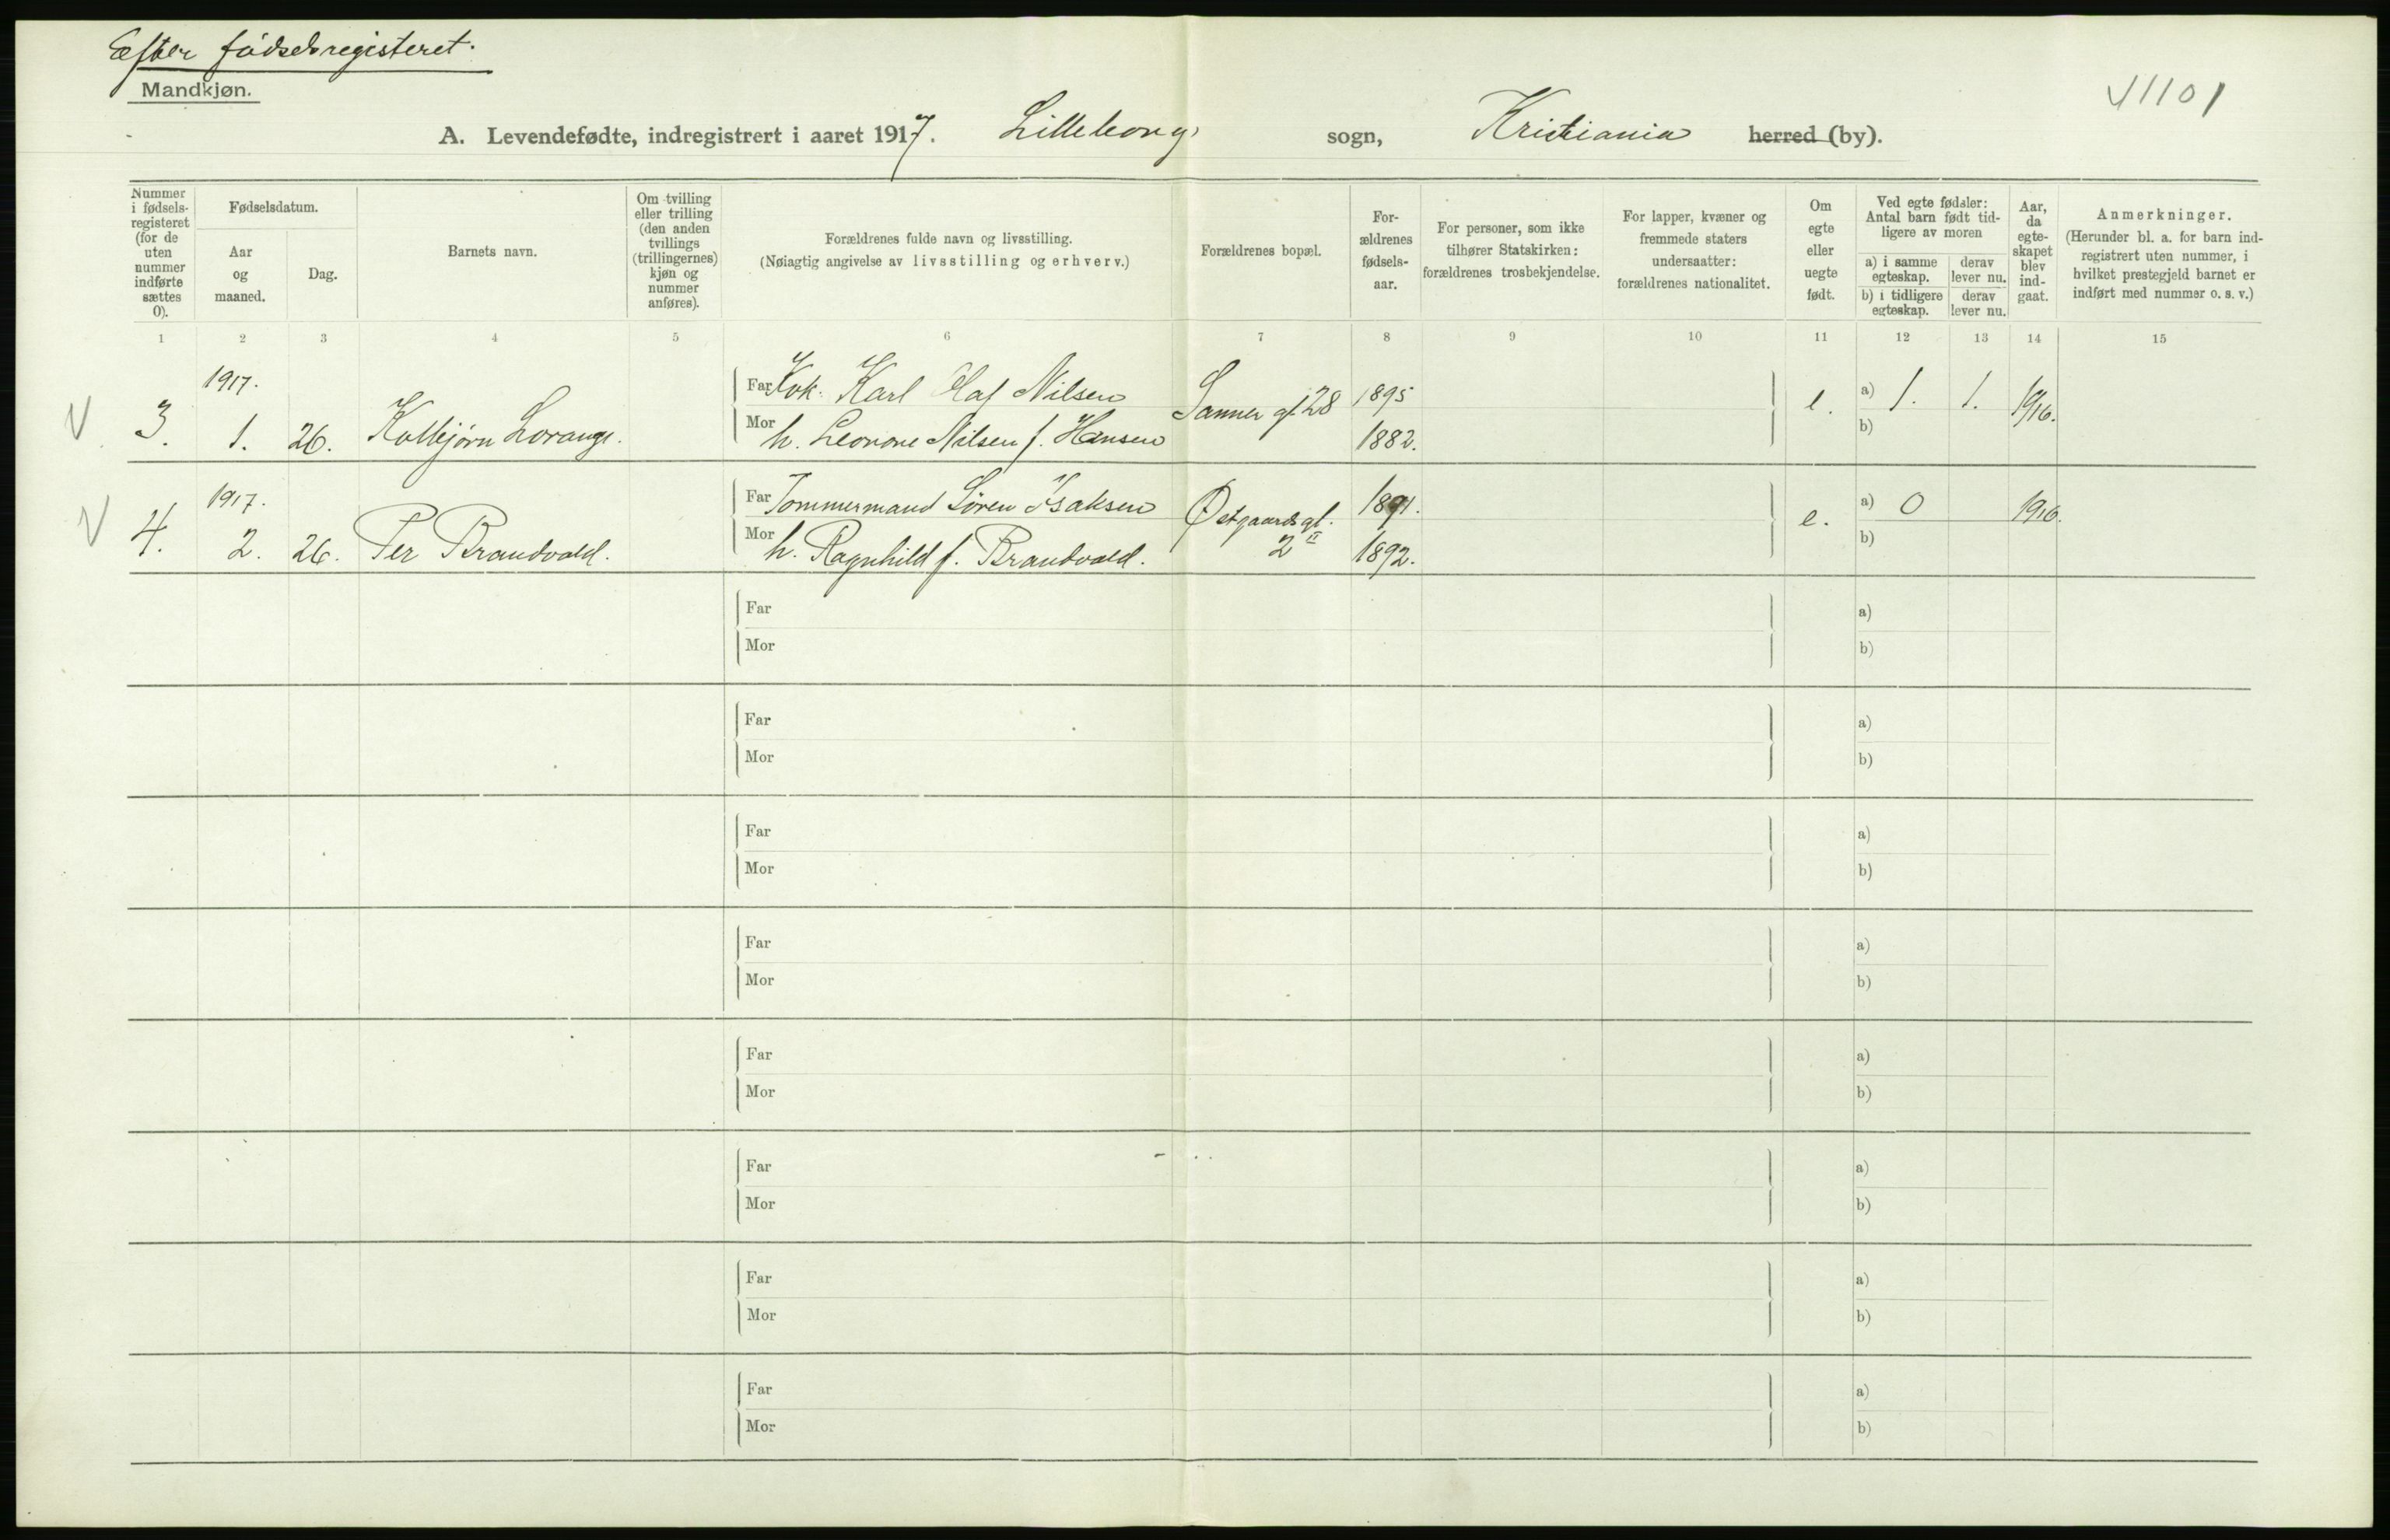 Efter fødselsregisteret.
Mandkjøn.
11101
A. Levendefødte, indregistrert i aaret 1917. Lilleborg sogn, Kristiania herred (by).
Nummer i fødsels-registeret (for de uten nummer indførte sættes 0).
Fødselsdatum.
Aar og maaned.
Dag.
Barnets navn.
Om tvilling eller trilling (den anden tvillings (trillingernes) kjøn og nummer anføres).
Forældrenes fulde navn og livsstilling.
(Nøiagtig angivelse av livsstilling og erhverv.)
Forældrenes bopæl.
For-ældrenes fødsels-aar.
For personer, som ikke tilhører Statskirken: forældrenes trosbekjendelse.
For lapper, kvæner og fremmede staters undersaatter: forældrenes nationalitet.
Om egte eller uegte født.
Ved egte fødsler: Antal barn født tid-ligere av moren
a) i samme egteskap.
derav lever nu.
b) i tidligere egteskap.
derav lever nu.
Aar, da egte-skapet blev ind-gaat.
Anmerkninger.
(Herunder bl. a. for barn ind-registrert uten nummer, i hvilket prestegjeld barnet er indført med nummer o. s. v.)
1 2 3 4 5 6 7 8 9 10 11 12 13 14 15
V 3. 1917. 1. 26. Kolbjørn Lorange.
Far Kok. Karl Olaf Nilsen Sanner gt 28 1895 e. a) 1. 1. 1916.
Mor h. Leonore Nilsen f. Hansen 1882. b)
V 4. 1917. 2. 26. Per Brandvold.
Far Tømmermand Søren Isaksen Østgaards gt. 2 II 1891. e. a) 0 1916.
Mor h. Ragnhild f. Brandvold. 1892. b)
Far a)
Mor b)
Far a)
Mor b)
Far a)
Mor b)
Far a)
Mor b)
Far a)
Mor b)
Far a)
Mor b)
Far a)
Mor b)
Far a)
Mor b)